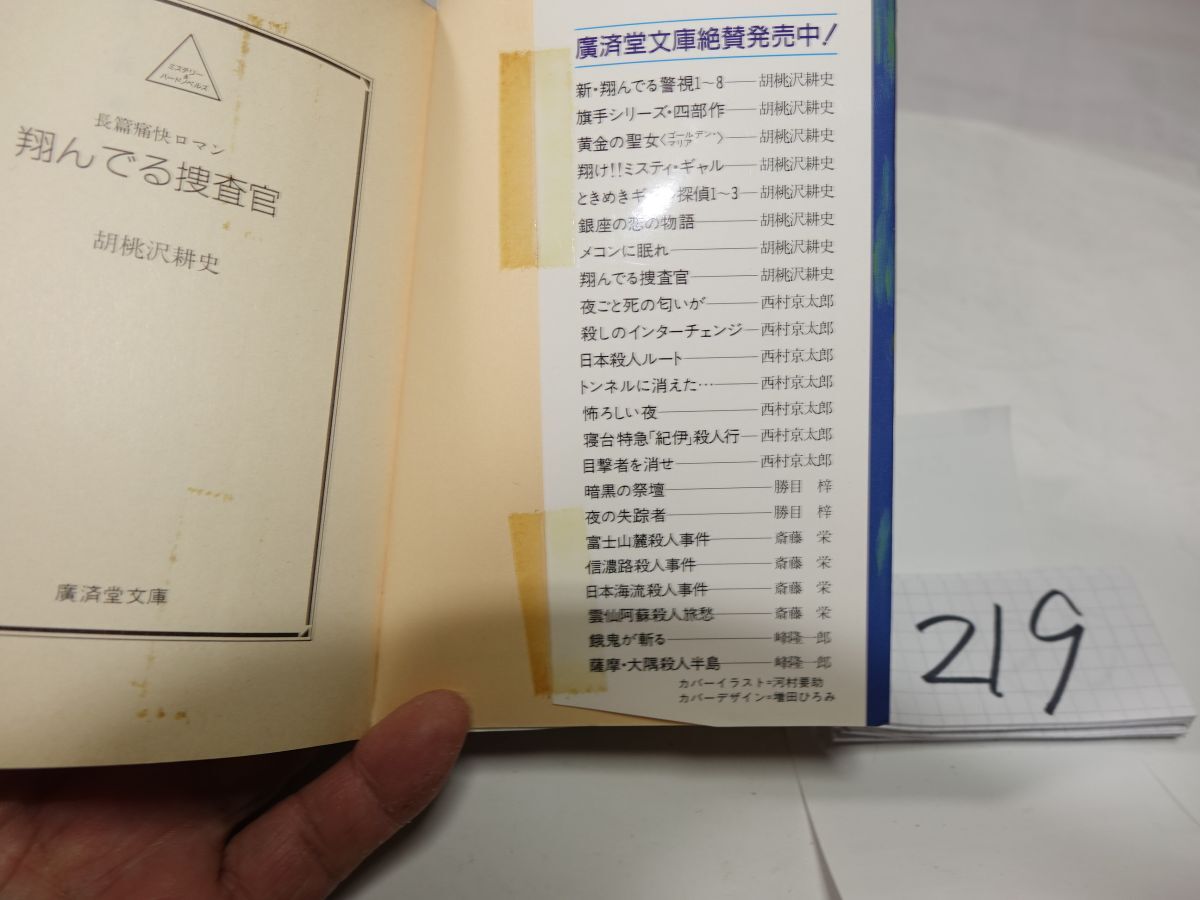 ミステリー
&
ハードノベルス
長篇痛快ロマン
翔んでる捜査官
胡桃沢耕史
廣済堂文庫
廣済堂文庫絶賛発売中!
新・翔んでる警視1〜8――胡桃沢耕史
旗手シリーズ・四部作――胡桃沢耕史
黄金の聖女〈ゴールデン・マリア〉――胡桃沢耕史
翔け!!ミスティ・ギャル――胡桃沢耕史
ときめきギ 探偵1〜3―胡桃沢耕史
銀座の恋の物語――胡桃沢耕史
メコンに眠れ――胡桃沢耕史
翔んでる捜査官――胡桃沢耕史
夜ごと死の匂いが――西村京太郎
殺しのインターチェンジ―西村京太郎
日本殺人ルート――西村京太郎
トンネルに消えた…――西村京太郎
怖ろしい夜――西村京太郎
寝台特急「紀伊」殺人行―西村京太郎
目撃者を消せ――西村京太郎
暗黒の祭壇――勝目 梓
夜の失踪者――勝目 梓
富士山麓殺人事件――斎藤 栄
信濃路殺人事件――斎藤 栄
日本海流殺人事件――斎藤 栄
雲仙阿蘇殺人旅愁――斎藤 栄
餓鬼が斬る――峰隆一郎
薩摩・大隅殺人半島――峰隆一郎
カバーイラスト=河村要助
カバーデザイン=増田ひろみ
219